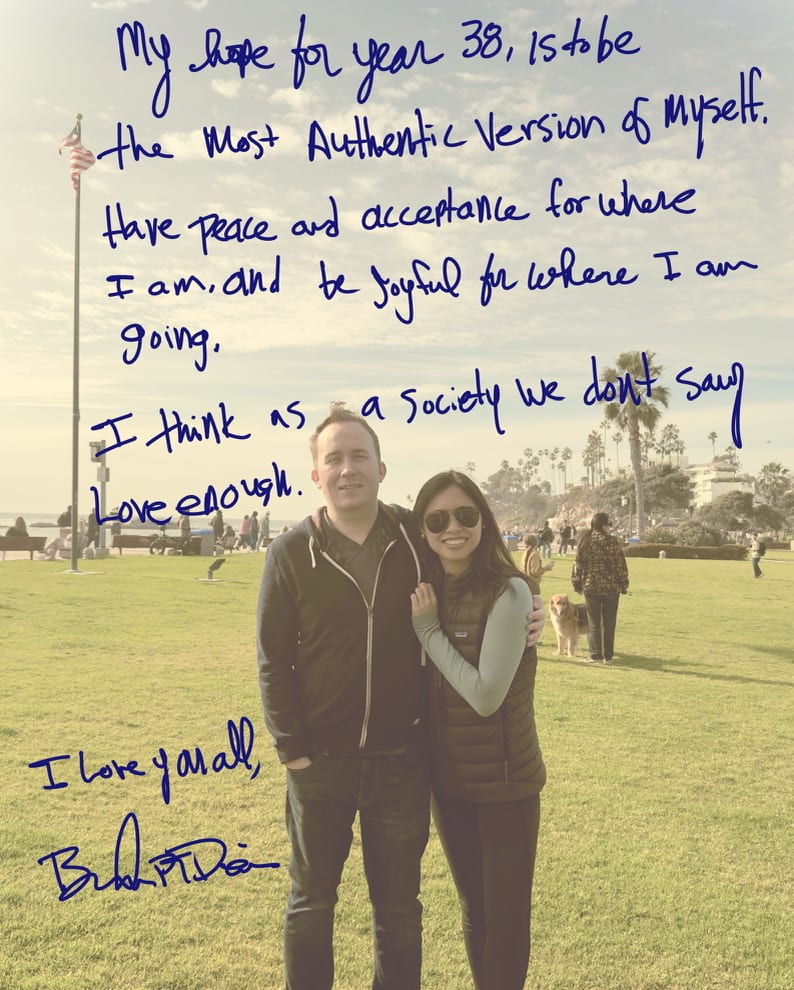 My hope for year 38, is to be
the Most Authentic Version of Myself.
Have peace and acceptance for where
I am, and be joyful for where I am
going.
I think as a society we don't say
Love enough.
I Love you all,